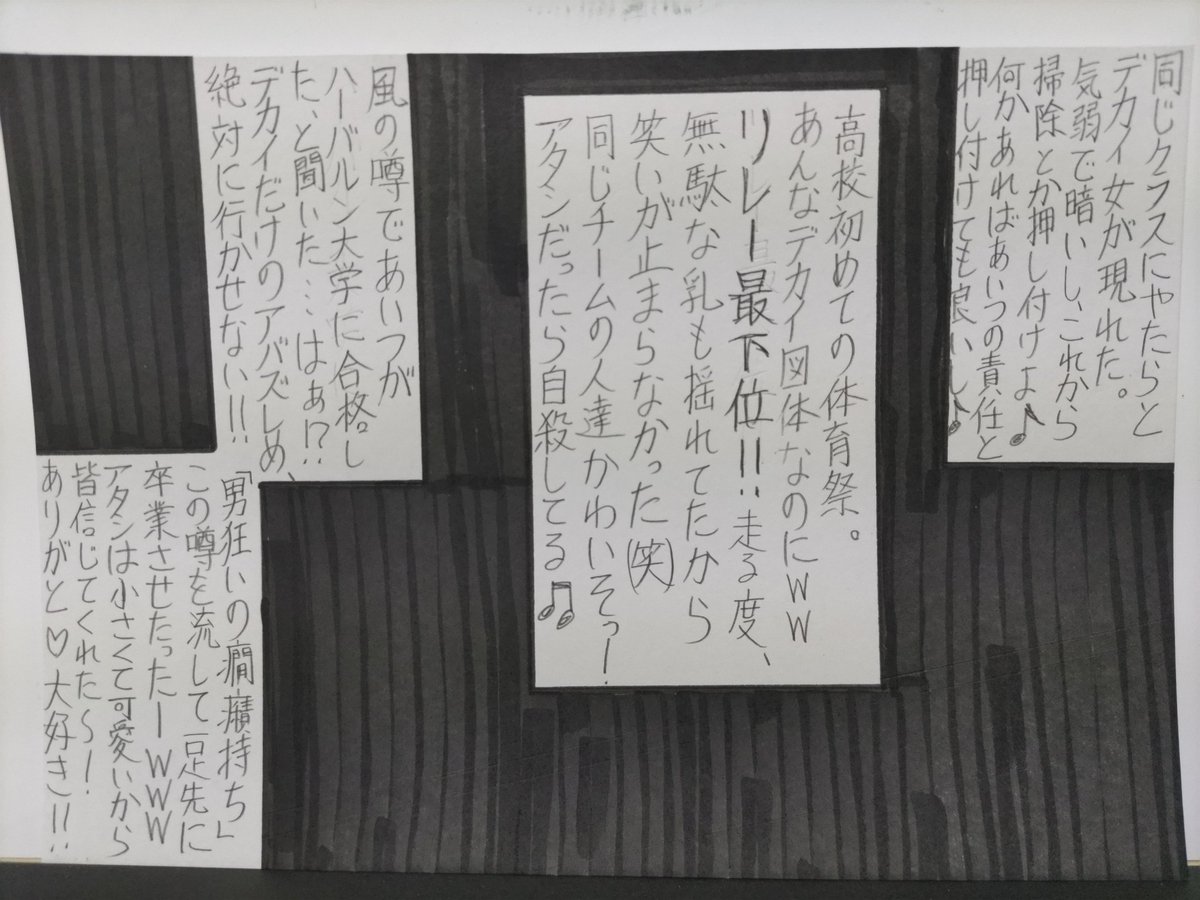 同じクラスにやたらと
デカイ女が現れた。
気弱で暗いし、これから
掃除とか押し付けよ♪
何かあればあいつの責任と
押し付けても良いし♪
高校初めての体育祭。
あんなデカイ図体なのにWW
リレー最下位!!走る度、
無駄な乳も揺れてたから
笑いが止まらなかった(笑)
同じチームの人達かわいそっー
アタシだったら自殺してる♫
風の噂であいつが
ハーバルン大学に合格し
た、と聞いた…はぁ!?
デカイだけのアバズレめ、
絶対に行かせない!!
「男狂いの癇癪持ち」
この噂を流して一足先に
卒業させたったーWWW
アタシは小さくて可愛いから
皆信じてくれた〜!
ありがと♡大好き!!